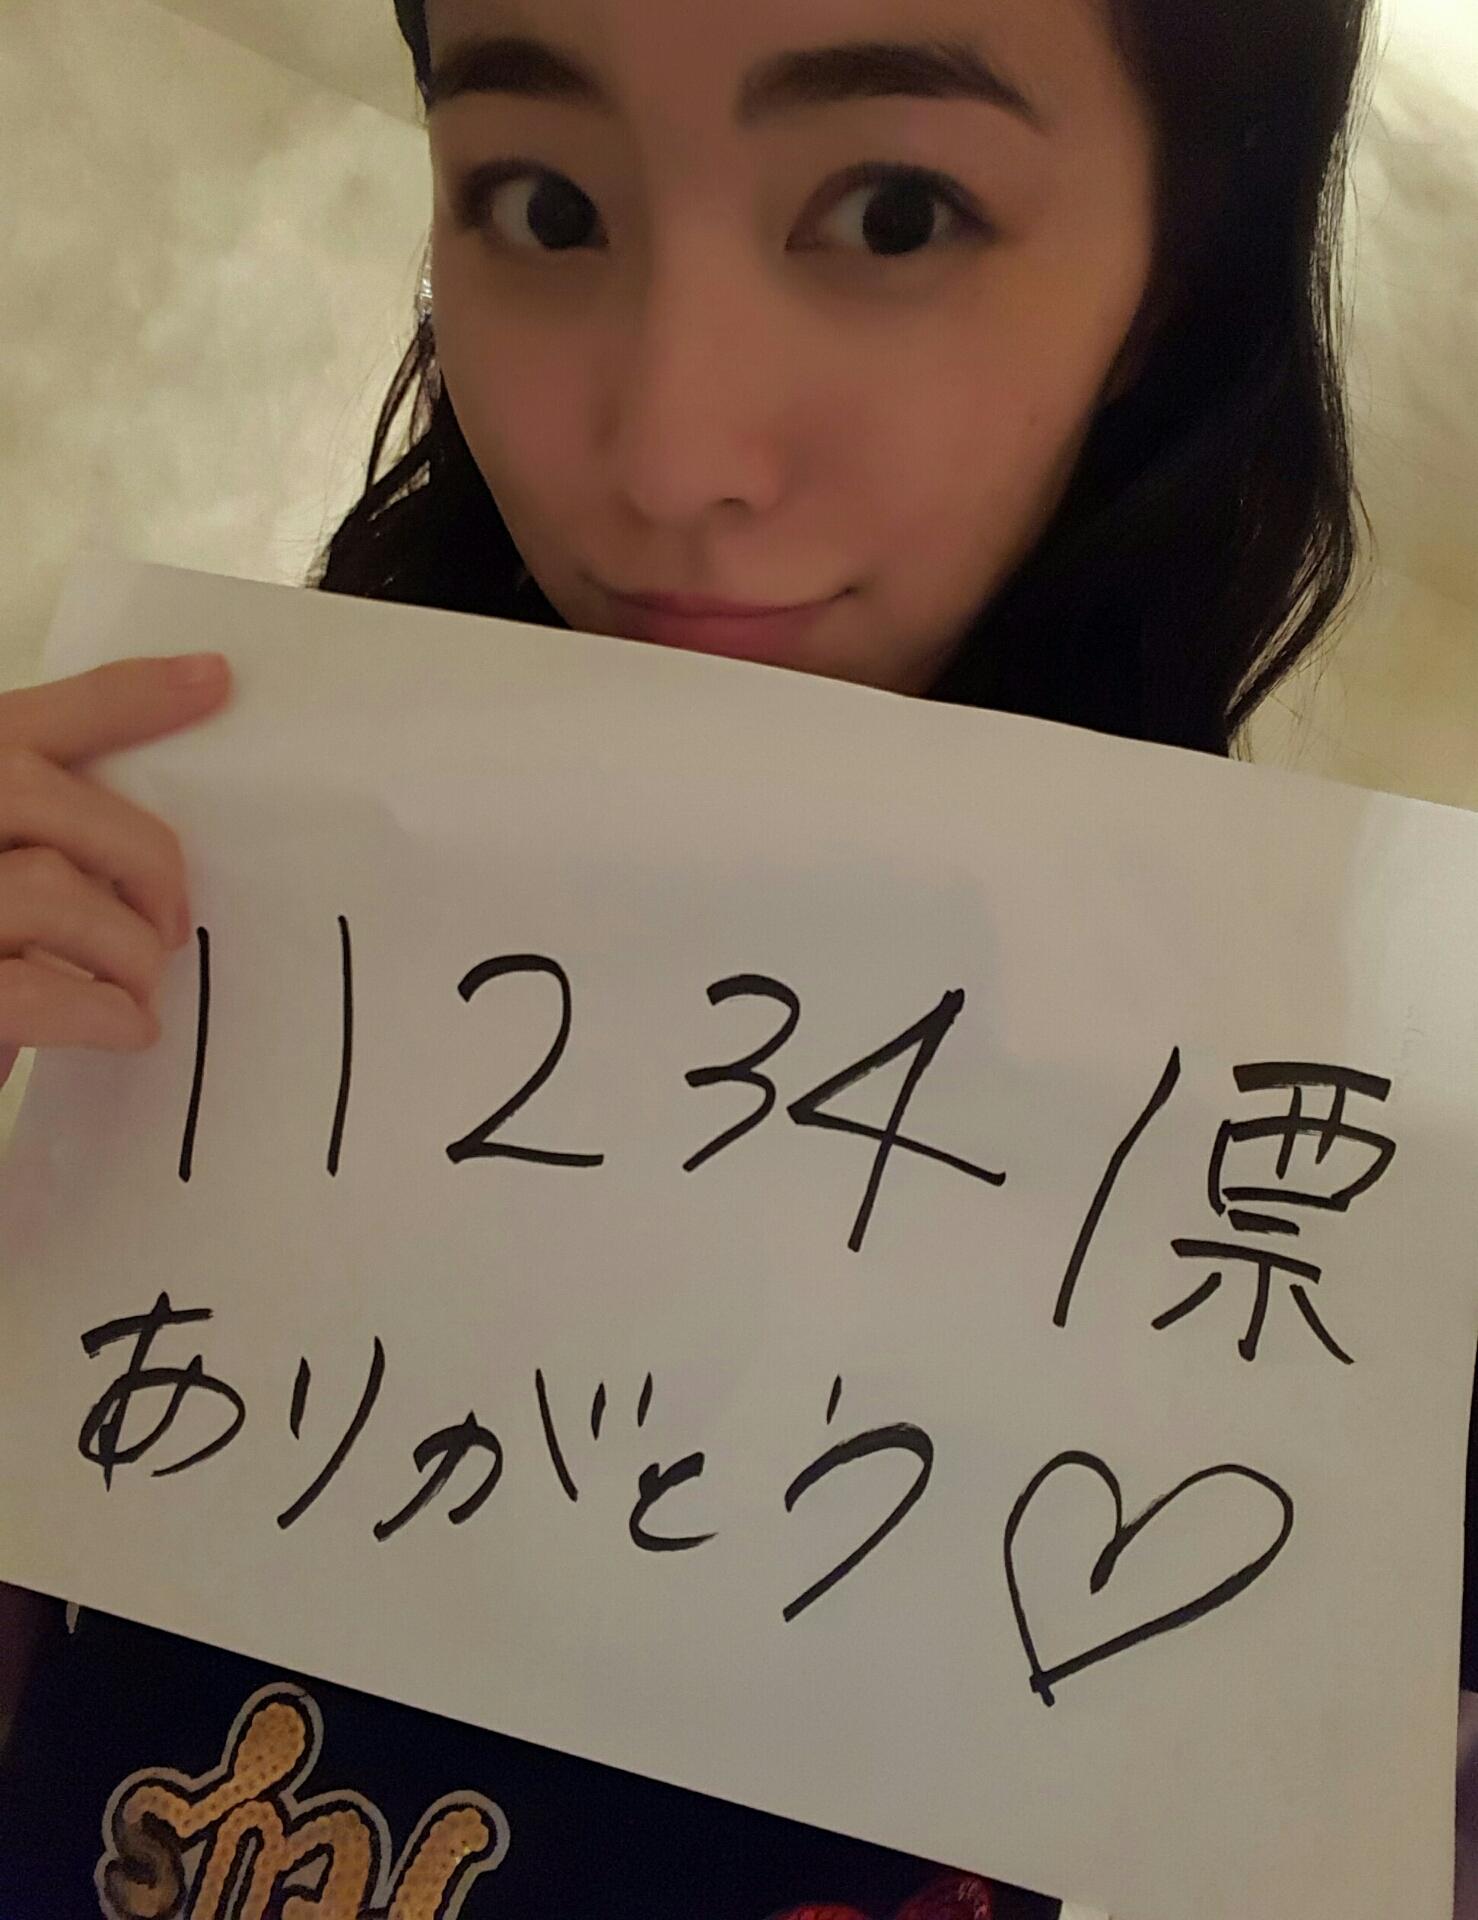 11234/票
ありがとう♡